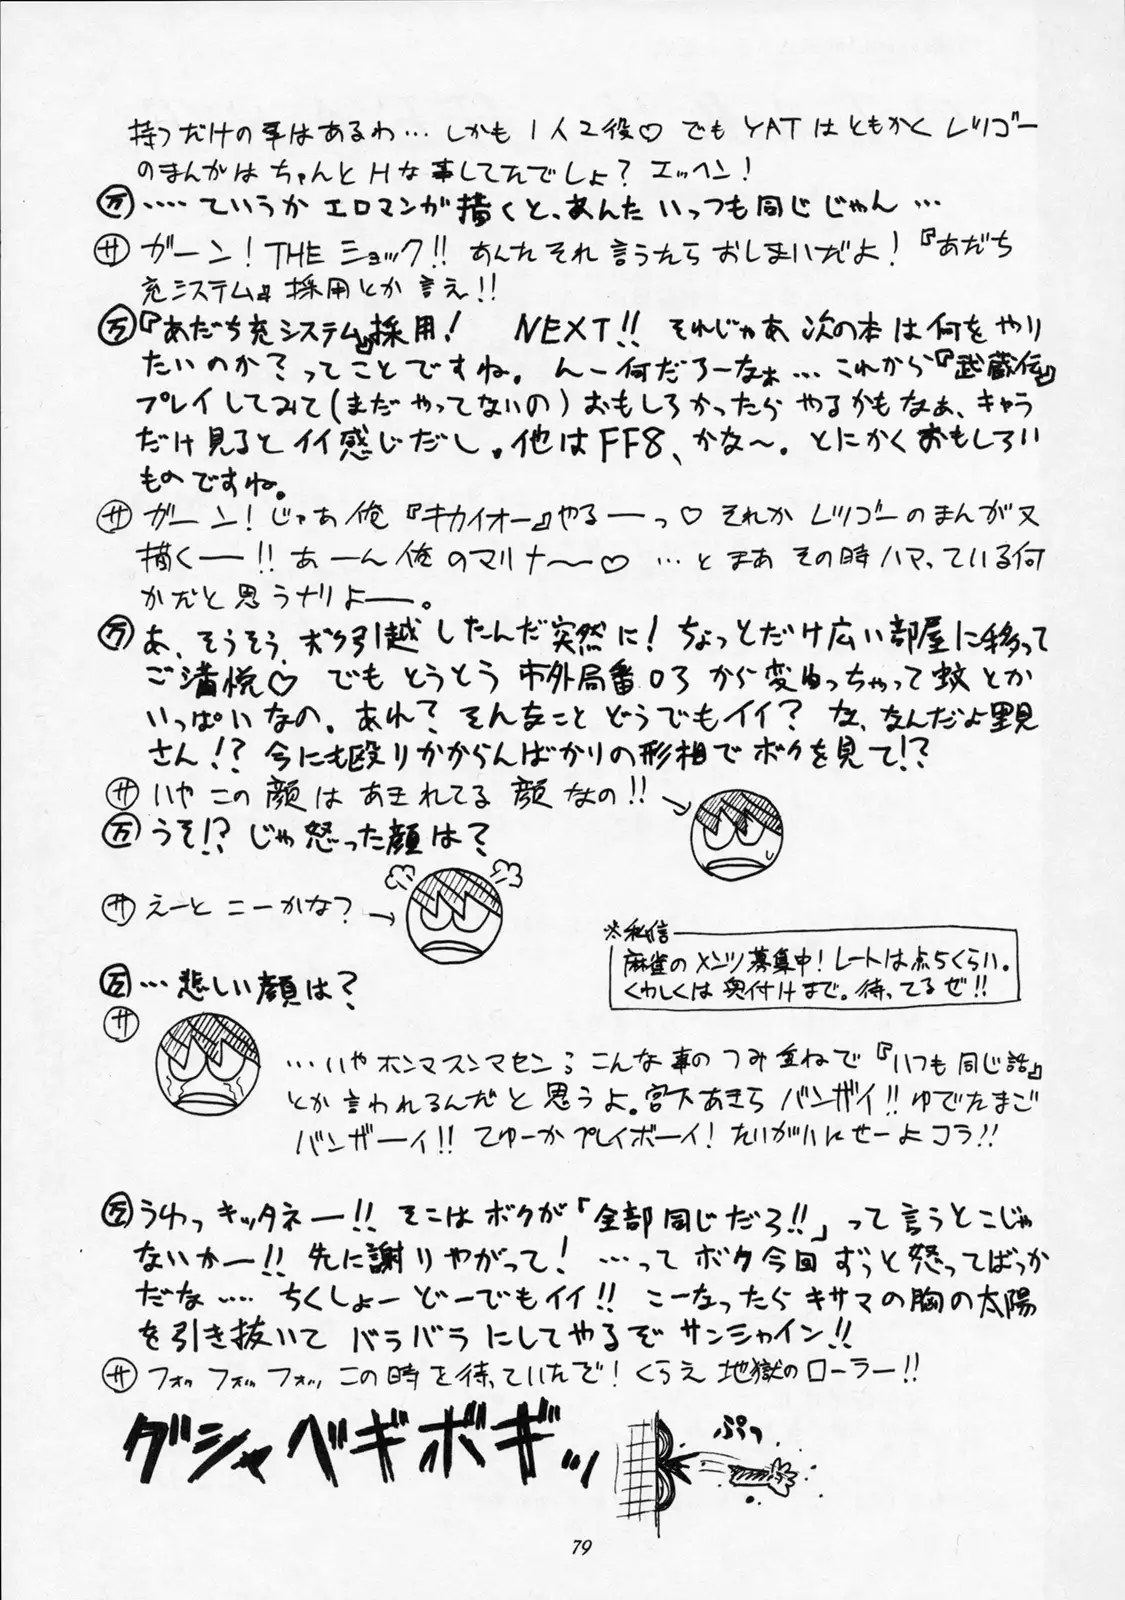 持つだけの事はあるわ…しかも1人2役♡でもYATはともかくレツゴー
のまんがはちゃんとHな事してたでしょ？エッヘン！
万‥‥ていうかエロマンガ描くと、あんたいっつも同じじゃん…
サ ガーン！THEショック!!あんたそれ言うたらおしまいだよ！『あだち
充システム』採用とか言え!!
万『あだち充システム』採用！ NEXT!! それじゃあ次の本は何をやり
たいのか？ってことですね。んー何だろーなぁ…これから『武蔵伝』
プレイしてみて(まだやってないの)おもしろかったらやるかもなぁ、キャラ
だけ見るとイイ感じだし。他はFF8、かな〜。とにかくおもしろい
ものですね。
サ ガーン！じゃあ俺『キカイオー』やるーっ♡それかレツゴーのまんが又
描くー!!あーん俺のマリナ〜♡…とまあその時ハマっている何
かだと思うナリよー。
万 あ、そうそうボク引越したんだ突然に！ちょっとだけ広い部屋に移って
ご満悦♡でもとうとう市外局番03から変わっちゃって蚊とか
いっぱいなの。あれ？そんなことどうでもイイ？な、なんだよ里見
さん!?今にも殴りかからんばかりの形相でボクを見て!?
サ いやこの顔はあきれてる顔なの!!→
万 うそ!?じゃ怒った顔は？
サ えーとこーかな？→
※私信
麻雀のメンツ募集中！レートは点5くらい。
くわしくは奥付けまで。待ってるぜ!!
万…悲しい顔は？
サ
…いやホンマスンマセン；こんな事のつみ重ねで『いつも同じ話』
とか言われるんだと思うよ。宮下あきらバンザイ!!ゆでたまご
バンザーイ!!てゆーかプレイボーイ！たいがいにせーよコラ!!
万 うわっキッタネー!!そこはボクが「全部同じだろ!!」って言うとこじゃ
ないかー!!先に謝りやがって！…ってボク今回ずっと怒ってばっか
だな‥‥ちくしょーどーでもイイ!!こーなったらキサマの胸の太陽
を引き抜いてバラバラにしてやるぞサンシャイン!!
サ フォッフォッフォッこの時を待っていたで！くらえ地獄のローラー!!
グシャベギボギッ
ぷっ
79